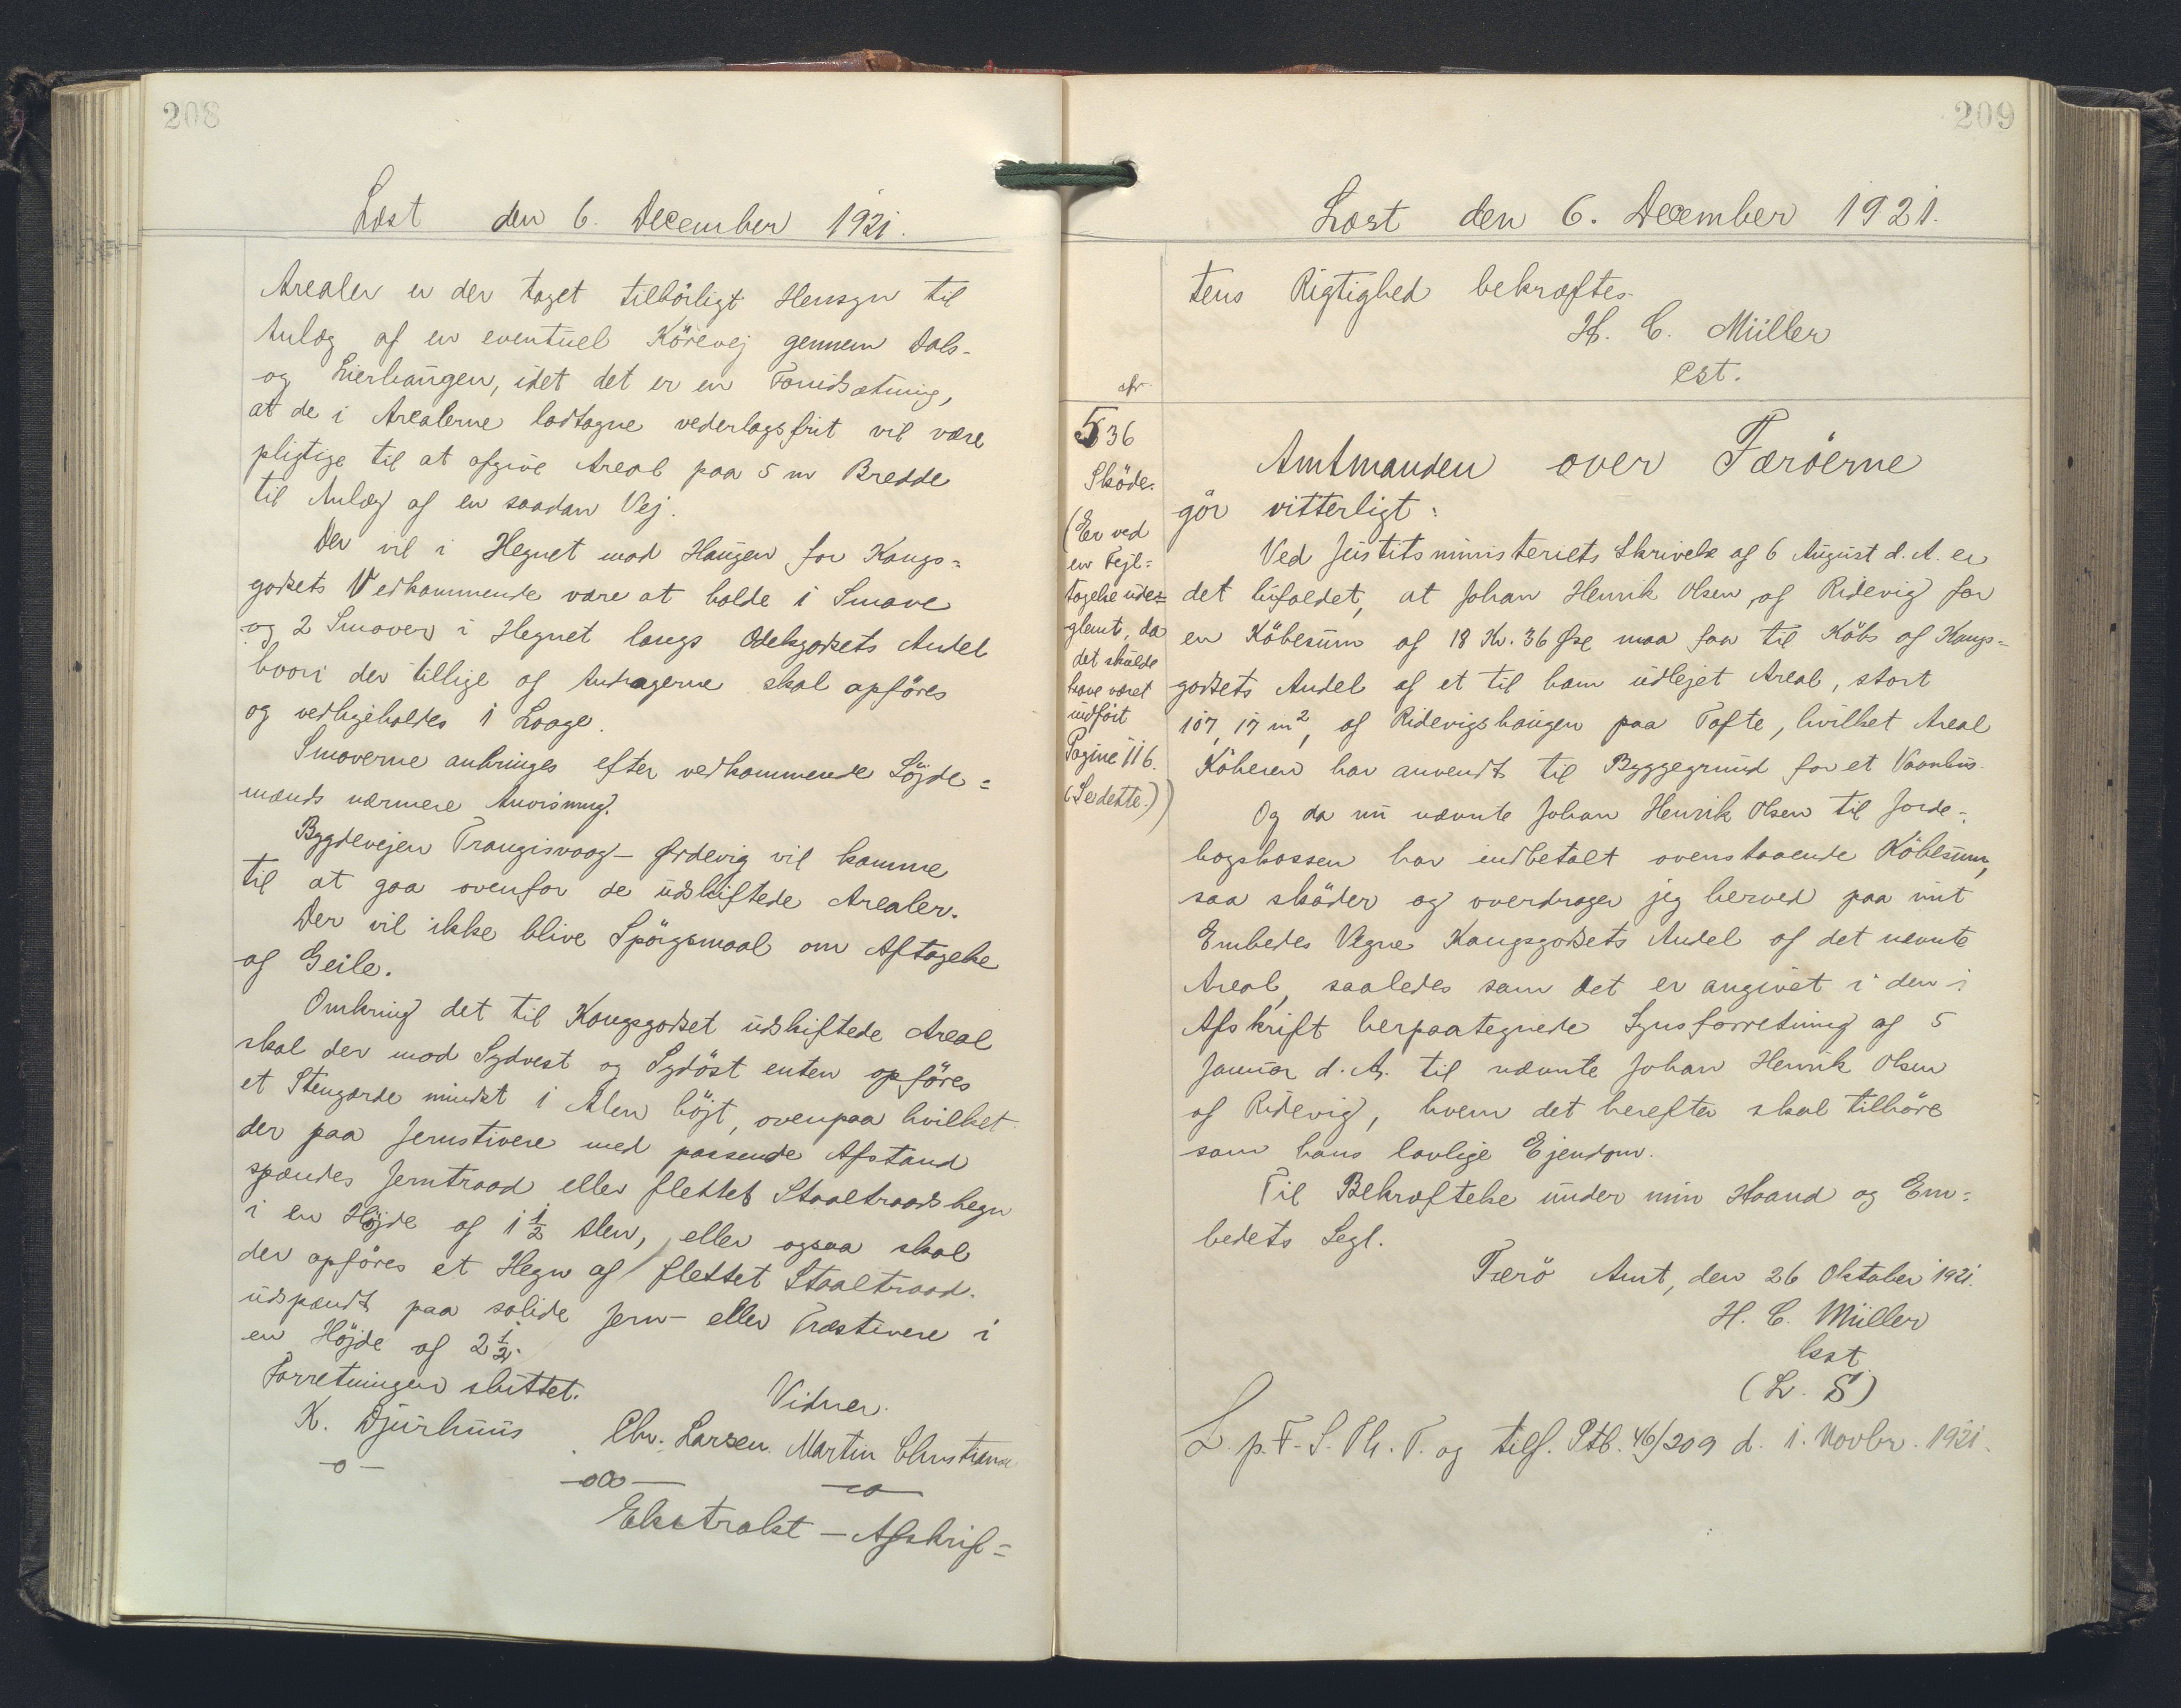 208
Læst den 6. December 1921.
Arealer er der taget tilbörligt Hensyn til
Anlæg af en eventuel Körevej gennem Dals-
og Lierhaugen, idet det er en Forudsætning,
at de i Arealerne lodtagne vederlagsfrit vil være
pligtige til at afgive Areal paa 5 m Bredde
til Anlæg af en saadan Vej.
Der vil i Hegnet mod Haugen for Kongs=
godsets Vedkommende være at holde 1 Smove
og 2 Smover i Hegnet langs Odelsgodsets Andel
hvori der tillige af Andragerne skal opföres
og vedligeholdes 1 Laage.
Smoverne anbringes efter vedkommende Syns=
mænds nærmere Anvisning.
Bygdevejen Trangisvaag - Ørdevig vil komme
til at gaa ovenfor de udskiftede Arealer.
Der vil ikke blive Spörgsmaal om Aftagelse
af Geile.
Omkring det til Kongsgodset udskiftede Areal
skal der mod Sydvest og Sydöst enten opföres
et Stengærde mindst 1 Alen höjt, ovenpaa hvilket
der paa Jernstivere med passende Afstand
spændes Jerntraad eller flettet Staaltraadshegn
i en Höjde af 1 1/2 Alen, eller ogsaa skal
der opföres et Hegn af flettet Staaltraad.
udspændt paa solide Jern- eller Træstivere i
en Höjde af 2 1/2.
Forretningen sluttet.
Vidner.
K. Djurhuus Chr. Larsen. Martin Christiansen
-o- -oOo- -o-
Ekstrakt - Afskrif=
209
Læst den 6. December 1921.
tens Rigtighed bekræftes
H. C. Müller
cst.
Nr
536
Sköde.
(Er ved
en Fejl=
tagelse ude=
glemt, da
det skulde
have været
indfört
Pagine 116.
(Se dette.))
Amtmanden over Færöerne
gör vitterligt:
Ved Justitsministeriets Skrivelse af 6 August d. A. er
det bifaldet, at Johan Henrik Olsen af Ridevig for
en Köbesum af 18 Kr. 36 Øre maa faa til Köbs af Kongs=
godsets Andel af et til ham udlejet Areal, stort
107,17 m2, af Ridevigshaugen paa Tofte, hvilket Areal
Köberen har anvendt til Byggegrund for et Vaanhus.
Og da nu nævnte Johan Henrik Olsen til Jorde=
bogskassen har indbetalt ovenstaaende Köbesum,
saa sköder og overdrager jeg herved paa mit
Embedes Vegne Kongsgodsets Andel af det nævnte
Areal, saaledes som det er angivet i den i
Afskrift herpaategnede Synsforretning af 5
Januar d. A. til nævnte Johan Henrik Olsen
af Ridevig, hvem det herefter skal tilhöre
som hans lovlige Ejendom.
Til Bekræftelse under min Haand og Em=
bedets Segl.
Færö Amt, den 26 Oktober 1921.
H. C. Müller
cst
(L. S)
L. p. F. S. Th. T. og tilf. Ptb. 46/209 d. 1. Novbr. 1921.